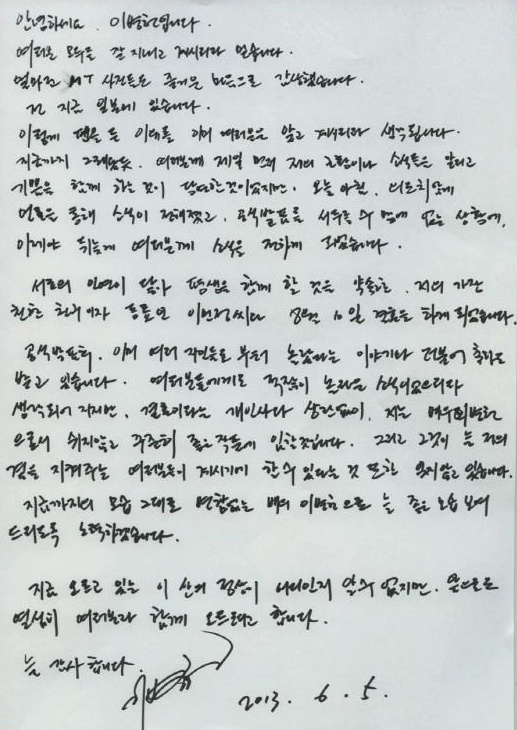 안녕하세요. 이병헌입니다.
여러분 모두들 잘 지내고 계시리라 믿습니다.
얼마전 MT 사진들은 즐거운 마음으로 감상했습니다.
전 지금 일본에 있습니다.
이렇게 펜을 든 이유를 이미 여러분은 알고 계시리라 생각됩니다.
지금까지 그래왔듯, 여러분께 제일 먼저 저의 고민이나 소식들을 알리고
기쁨을 함께 하는 것이 당연한 것이었지만, 오늘 아침, 의도치 않게
언론을 통해 소식이 전해졌고, 공식발표를 서두를 수 밖에 없는 상황에,
이제야 뒤늦게 여러분께 소식을 전하게 되었습니다.
서로의 인연이 닿아 평생을 함께 할 것을 약속한, 저의 가장
친한 친구이자 동료인 이민정씨와 8월 10일 결혼을 하게 되었습니다.
공식발표후, 이미 여러 지인들로 부터 놀랐다는 이야기와 더불어 축하도
받고 있습니다. 여러분들에게도 적잖이 놀라운 소식이었으리라
생각되어 지지만, 결혼이라는 개인사와 상관없이, 저는 배우 이병헌
으로서 쉬지않고 꾸준히 좋은 작품에 임할것입니다. 그리고 그것이 늘 저의
곁을 지켜주는 여러분들이 계시기에 할 수 있다는 것 또한 잊지않고 있습니다.
지금까지의 모습 그대로 변함없는 배우 이병헌으로 늘 좋은 모습 보여
드리도록 노력하겠습니다.
지금 오르고 있는 이 산의 정상이 어디인지 알 수 없지만, 앞으로도
열심히 여러분과 함께 오르려고 합니다.
늘 감사합니다.
2013. 6. 5.